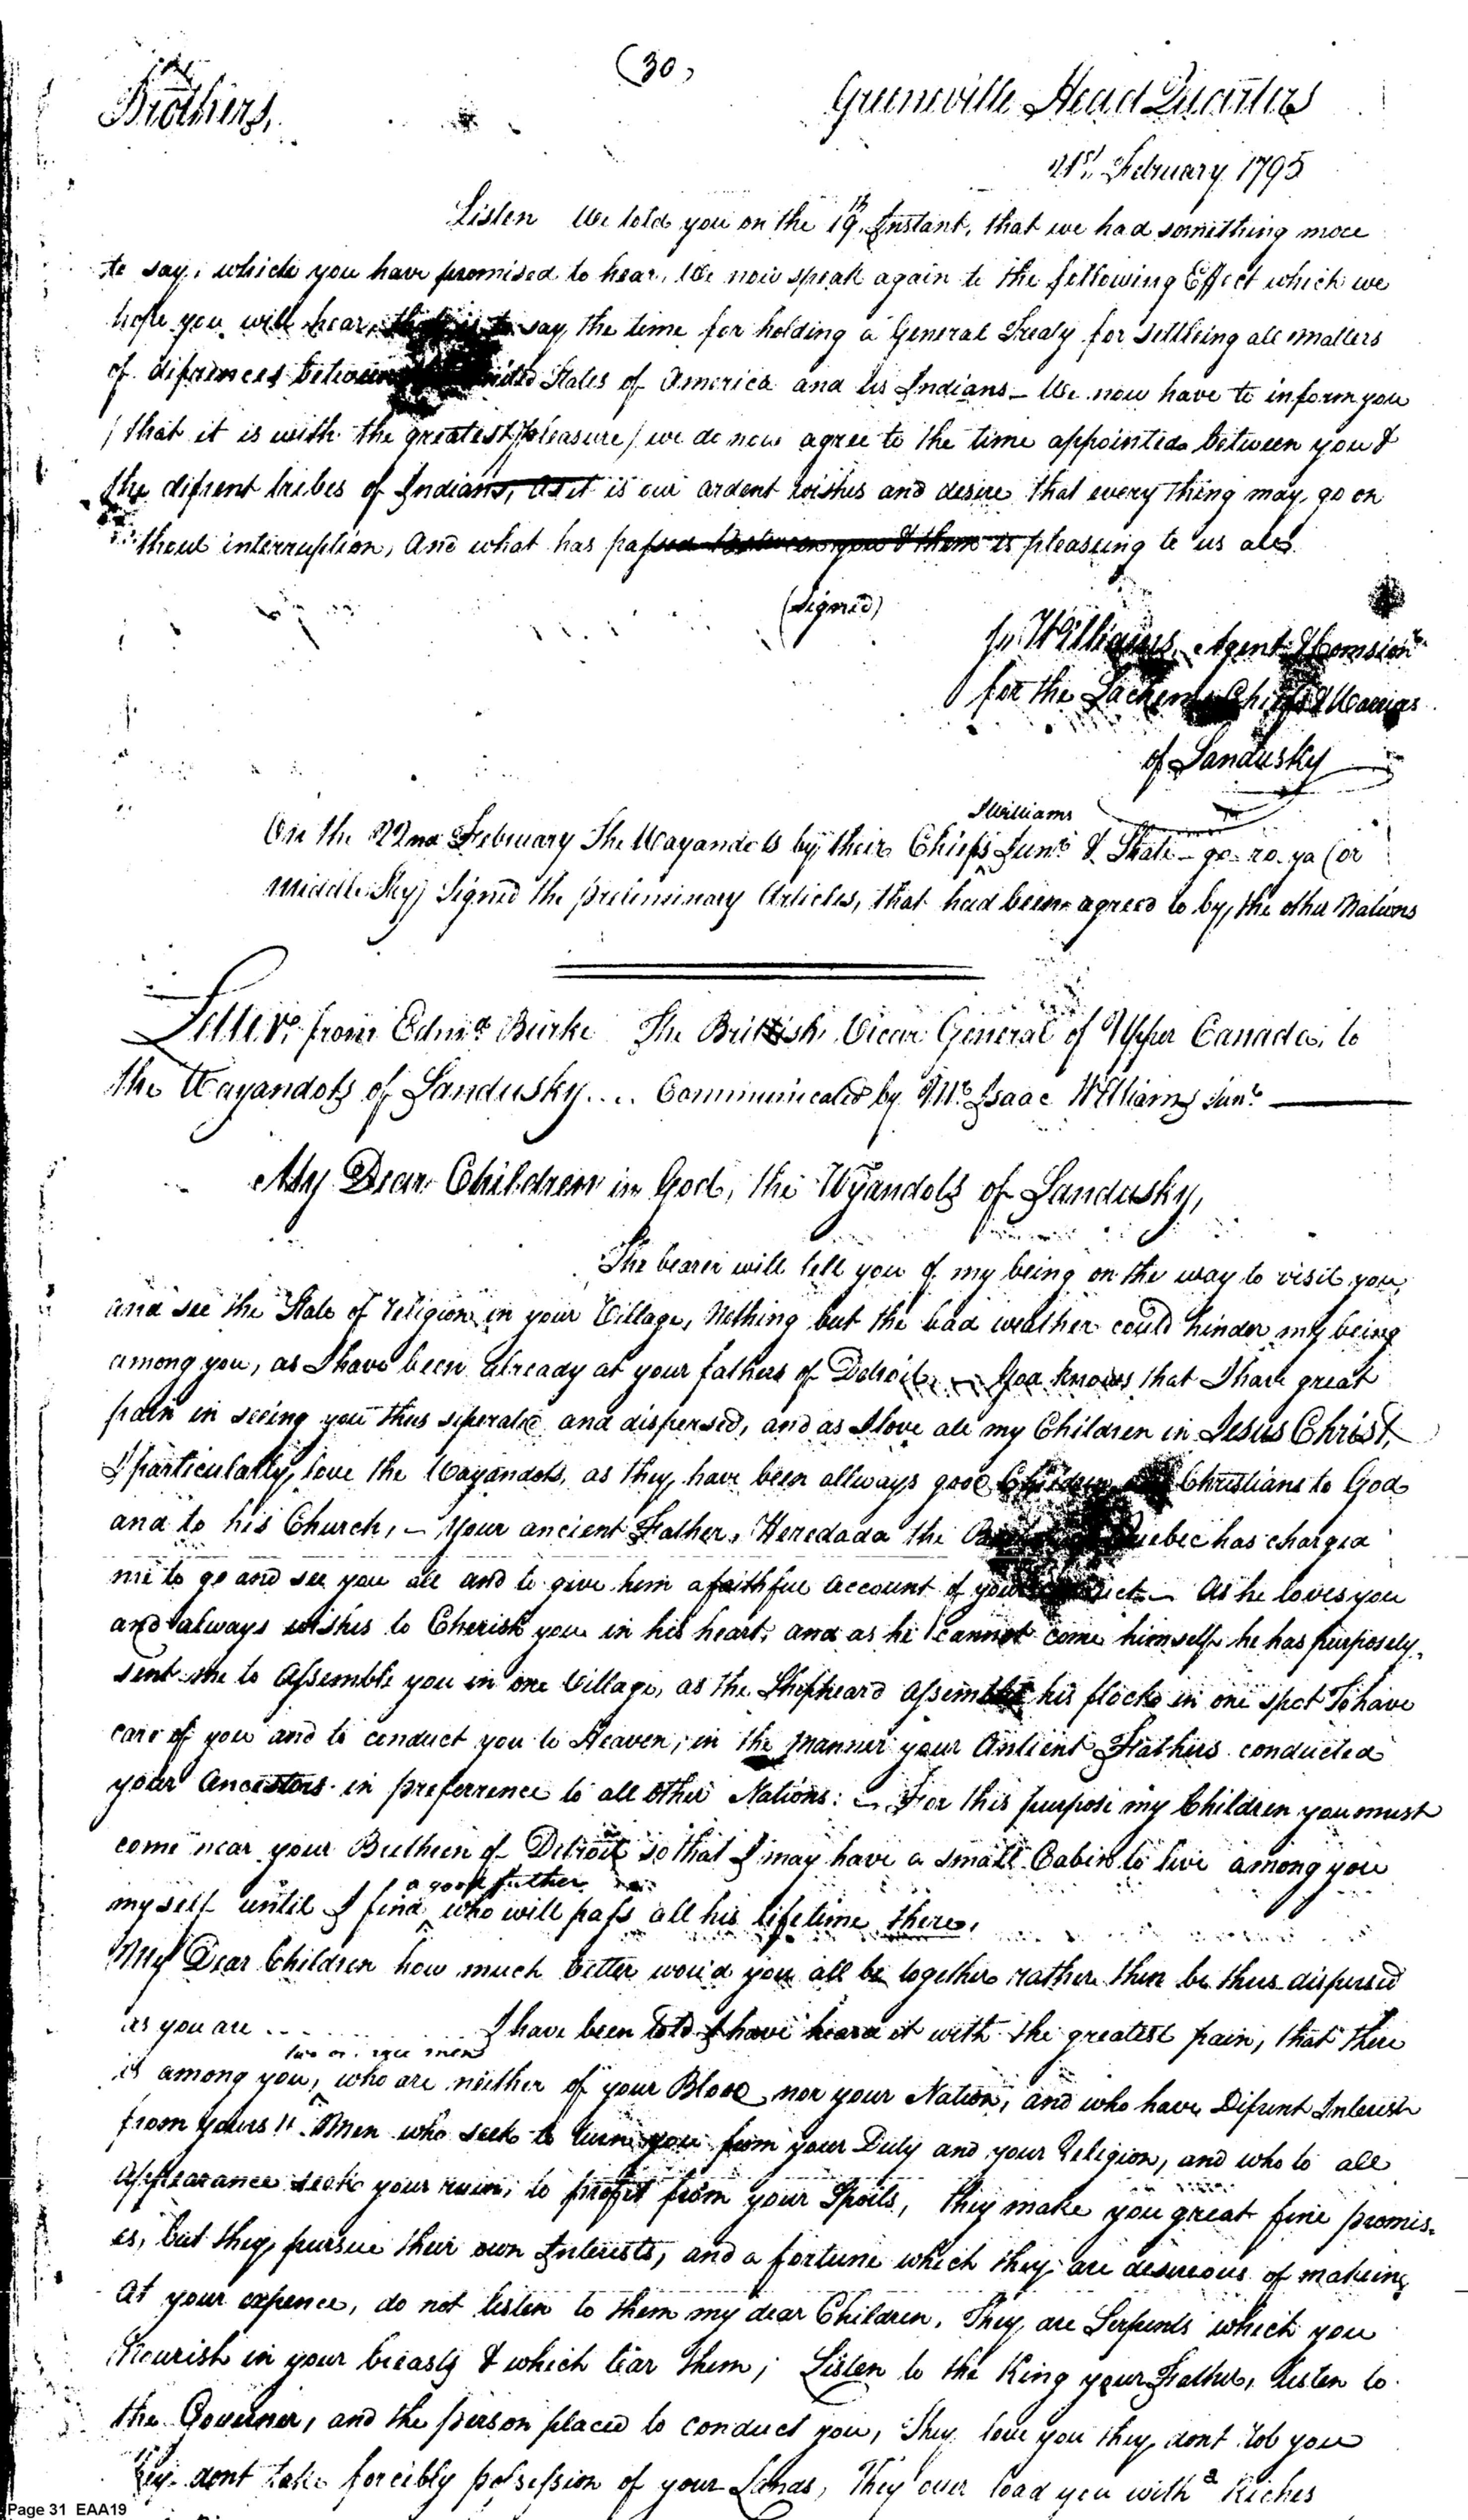 (30)
Brothers,
Greeneville Head Quarters
21st. February 1795
Listen We told you on the 19th. Instant, that we had something more
to say, which you have promised to hear, We now speak again to the following Effect which we
hope you will hear, that is to say, the time for holding a General Treaty for settleing all matters
of difrences between United States of America and us Indians_ We now have to inform you
/ that it is with the greatest pleasure / we do now agree to the time appointed between you &
the difrent tribes of Indians, as it is our ardent wishes and desire that every thing may go on
without interruption, And what has passed between you & them is pleasing to us all
(Signed)
Williams, Agent & Comsionr.
for the Sachems Chiefs & Warriors
of Sandusky
I Williams
On the 22nd February The Wayandots by their Chiefs Junr. & Shate-go-ro-ya (or
Middle Sky) Signed the preliminary Articles, that had been agreed to by, the other Nations
Letter from Edmd. Burke The British Vicar General of Upper Canada, to
the Wayandots of Sandusky.... Communicated by Mr. Isaac Williams Junr.
My Dear Children in God, the Wyandots of Sandusky,
The bearer will tell you of my being on the way to visit you,
and see the State of religion in your Village, Nothing but the bad weather could hinder my being
among you, as I have been already at your fathers of Detroit, _ God knows that I have great
pain in seeing you thus seperated and dispersed, and as I love all my Children in Jesus Christ,
I particularly, love the Wayandots, as they, have been allways good Children Christians to God
and to his Church, _ Your ancient Father, Heredada the Quebec has charged
me to go and see you all and to give him a faithful account of your conduct_ As he loves you
and always wishes to Cherish you in his heart, and as he cannot come himself he has purposely,
sent me to Assemble you in one Village, as the Shepheard Assembles his flocks in one spot To have
care of you and to conduct you to Heaven, in the manner your Antient Fathers conducted
your Ancestors in preferrence to all other Nations: _ For this purpose my Children you must
come near your Bretheren of Detroit so that I may have a small Cabin to live among you
a good father
myself until I find ^ who will pass all his lifetime there,
My Dear Children how much better wou'd you all be together rather then be thus dispersed
as you are ... I have been told I have heard it with the greatest pain, that there
two or three men
is among you, ^ who are neither of your Blood nor your Nation, and who have Difrent Interest
from yours!! Men who seek to turn you from your Duty and your Religion, and who to all
Appearance seek your ruin, to profit from your Spoils, they make you great fine promis-
es, but they, pursue their own Interests, and a fortune which they are desireous of makeing
At your expence, do not listen to them my dear Children, They are Serpents which you
Nourish in your breasts & which tear them; Listen to the King your Father, listen to
the Governer, and the person placed to conduct you, They love you they dont rob you
they dont take forcibly possession of your Lands, They over load you with a Riches
Page 31 EAA19